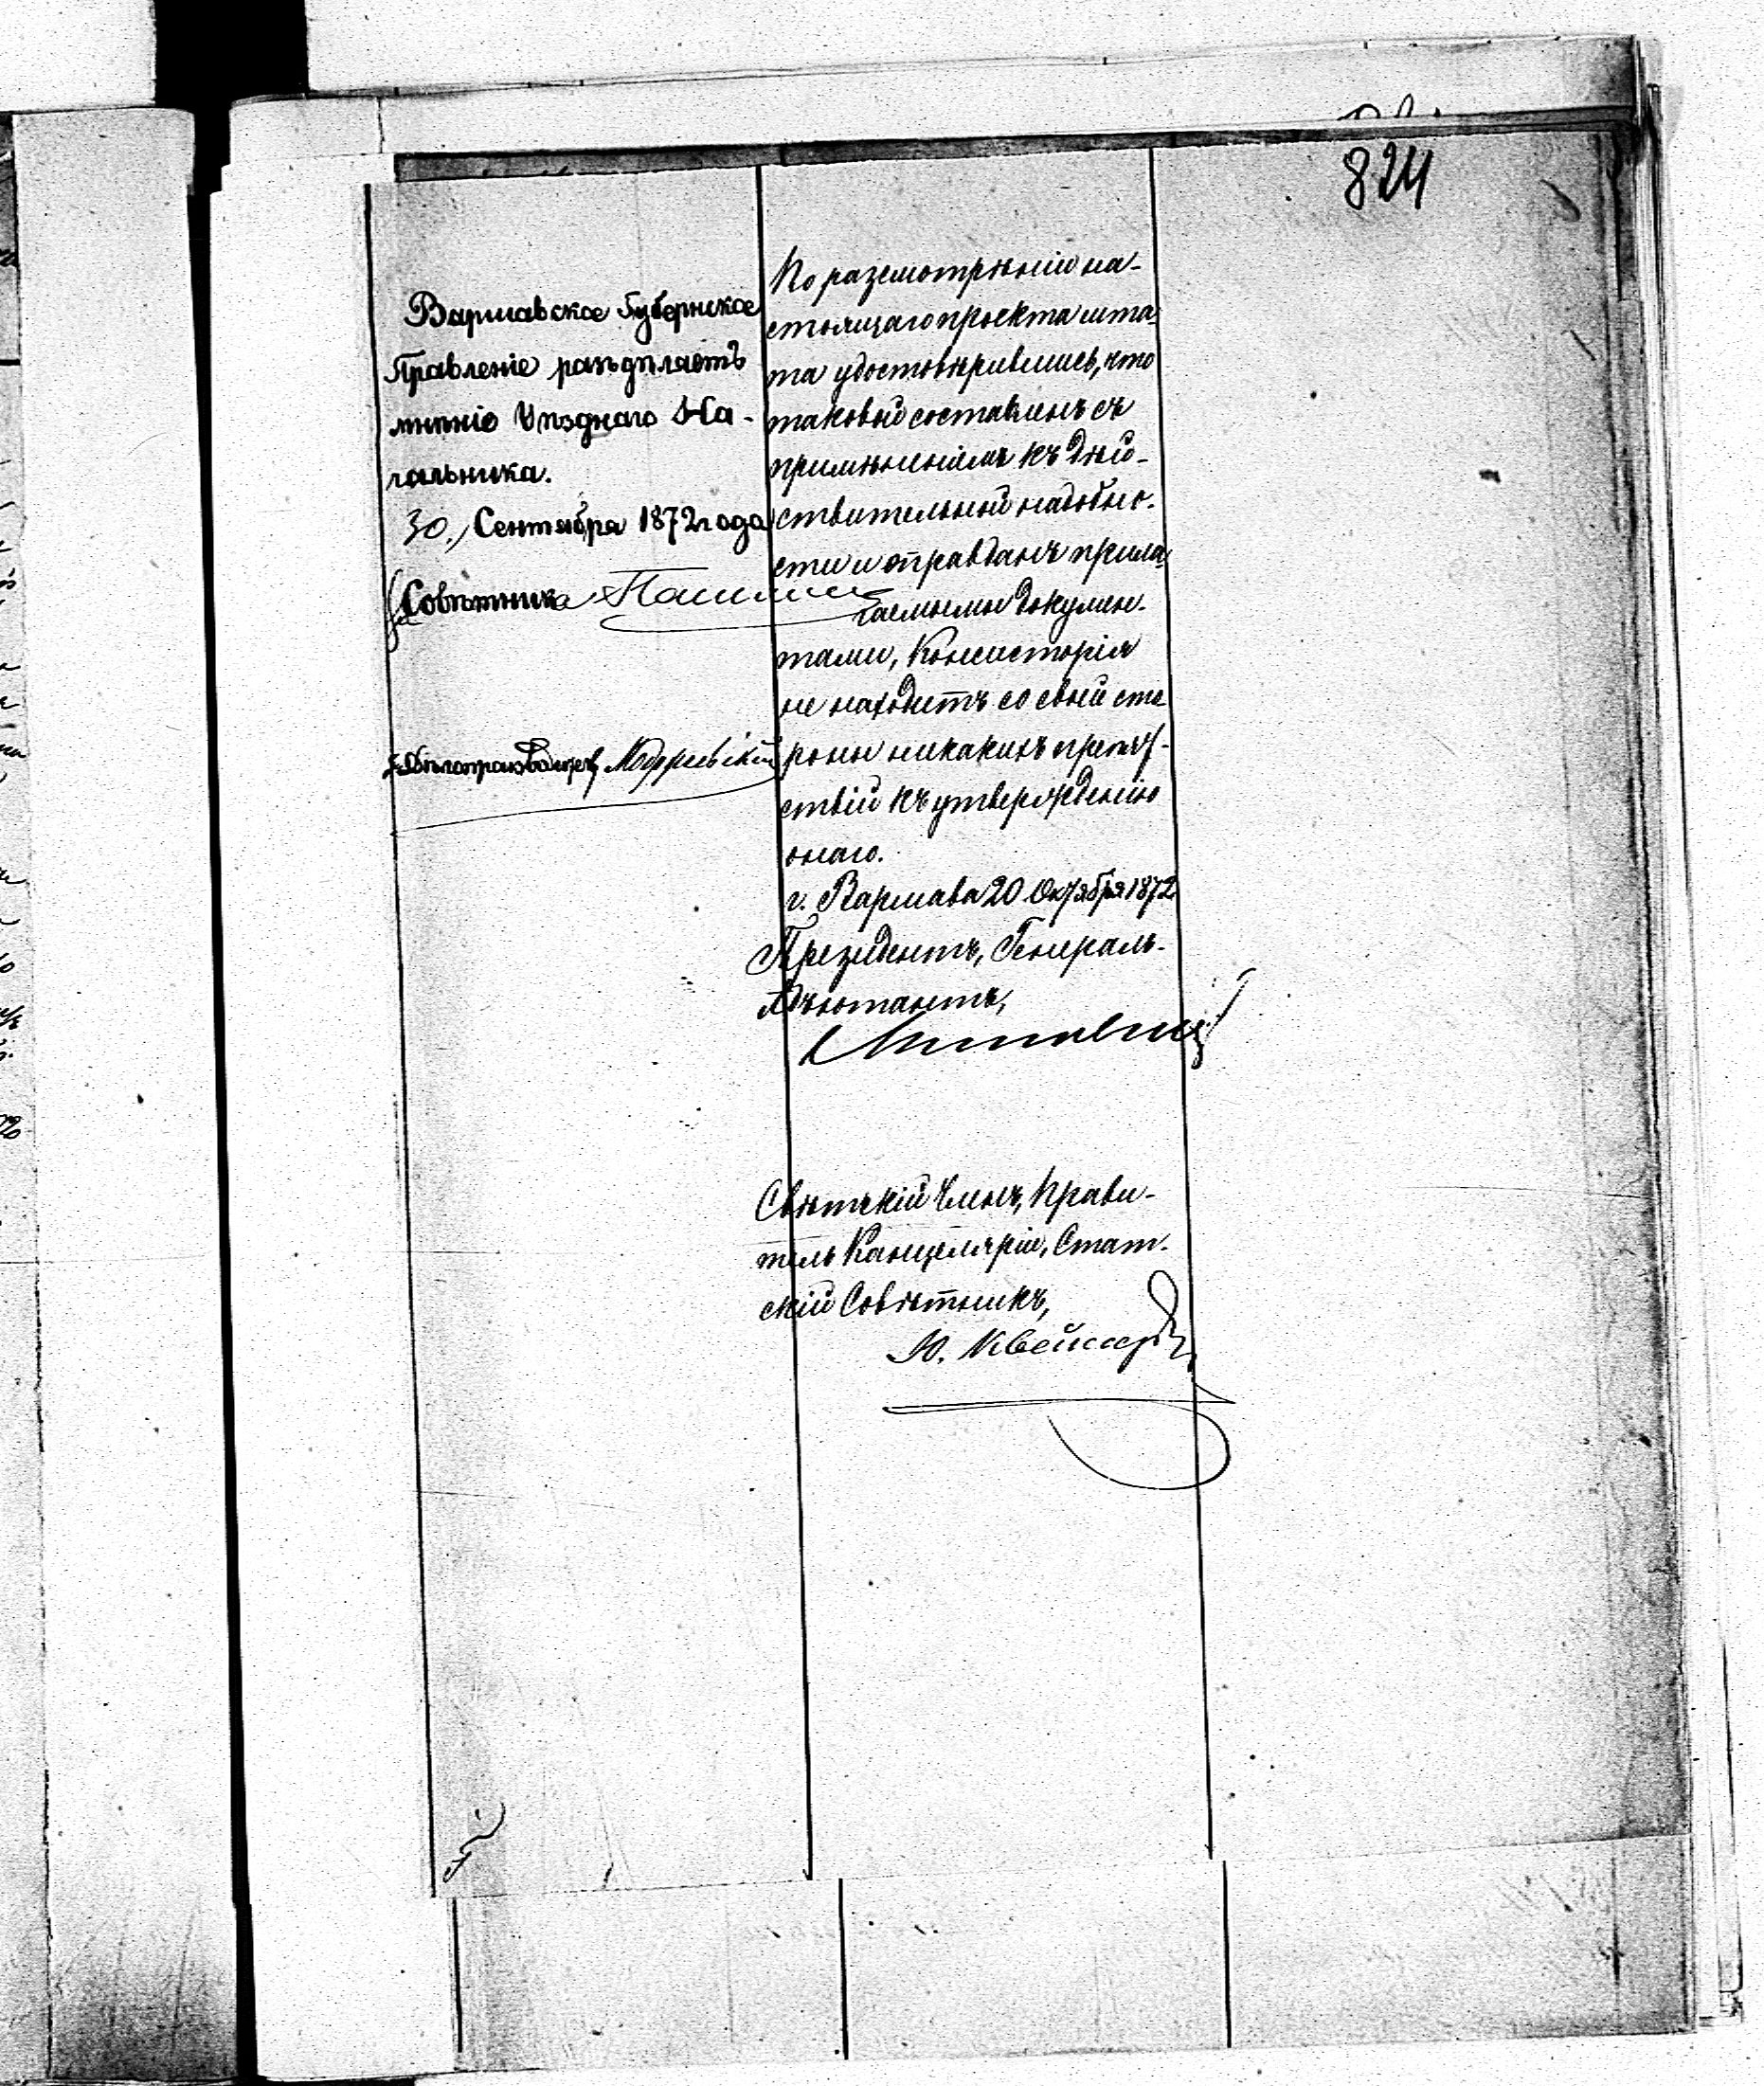 824
Варшавское Губернское
Правленіе раздѣляетъ
мнѣніе Уѣзднаго На-
чальника.
30 Сентября 1872 года
За Совѣтника
Дѣлопроизводитель
По разсмотрѣніи на-
стоящаго проекта шта-
та удостовѣрившись, что
таковый составленъ съ
примѣненіемъ къ дѣй-
ствительной надобно-
сти и оправданъ прила-
гаемыми докумен-
тами, Консисторія
не находитъ со своей сто-
роны никакихъ препят-
ствій къ утвержденію
онаго.
г. Варшава 20 Октября 1872
Президентъ, Генералъ-
Адъютантъ,
Свѣтскій Членъ, Прави-
тель Канцеляріи, Стат-
скій Совѣтникъ,
Ю.